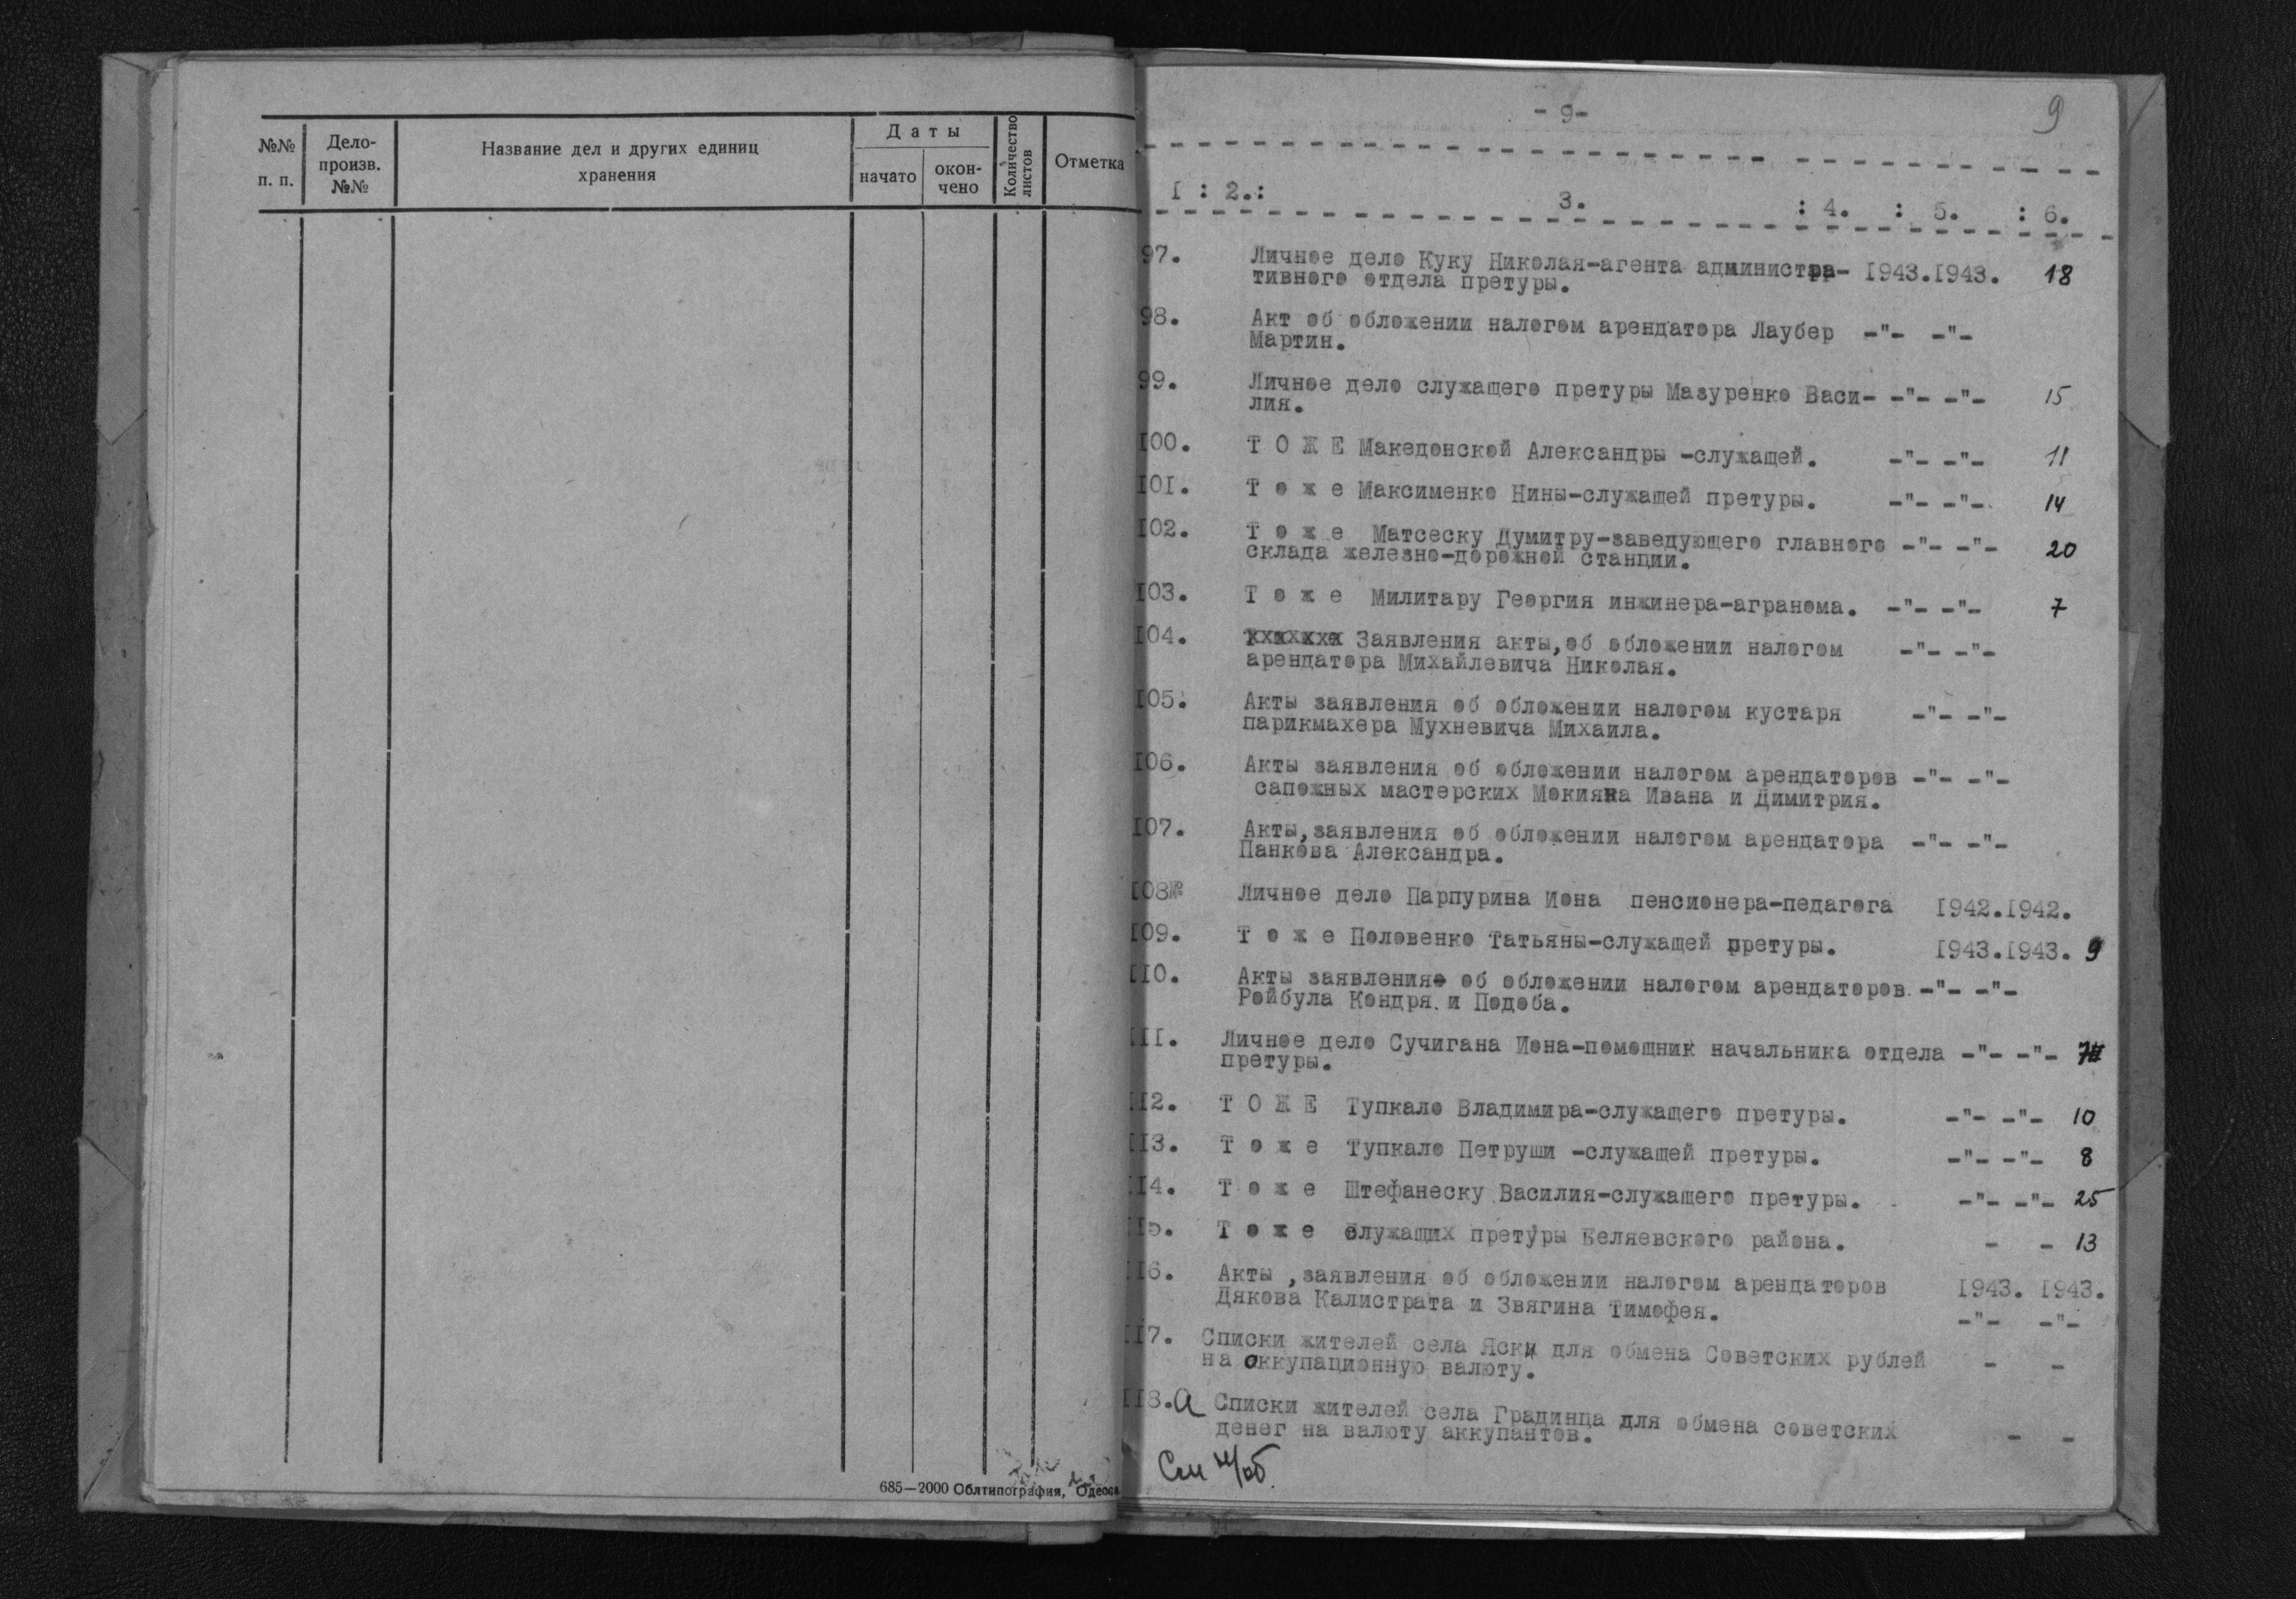 №№
п. п.
Дело-
произв.
№№
Название дел и других единиц
хранения
Даты
начато
окон-
чено
Количество
листов
Отметка
685—2000 Облтипография, Одесса
- 9-
9
I : 2.: 3. : 4. : 5. : 6.
97. Личное дело Куку Николая-агента администра- I943.I943. 18
тивного отдела претуры.
98. Акт об обложении налогом арендатора Лаубер -"- -"-
Мартин.
99. Личное дело служащего претуры Мазуренко Васи- -"- -"- 15
лия.
I00. Т О Ж Е Македонской Александры -служащей. -"- -"- 11
I0I. Т о ж е Максименко Нины-служащей претуры. -"- -"- 14
I02. Т о ж е Матсеску Думитру-заведующего главного -"- -"- 20
склада железно-дорожной станции.
I03. Т о ж е Милитару Георгия инжинера-агранома. -"- -"- 7
I04. Заявления акты,об обложении налогом -"- -"-
арендатора Михайлевича Николая.
I05. Акты заявления об обложении налогом кустаря -"- -"-
парикмахера Мухневича Михаила.
I06. Акты заявления об обложении налогом арендаторов -"- -"-
сапожных мастерских Мокияка Ивана и Димитрия.
I07. Акты,заявления об обложении налогом арендатора -"- -"-
Панкова Александра.
I08№ Личное дело Парпурина Иона пенсионера-педагога I942.I942.
I09. Т о ж е Половенко Татьяны-служащей претуры. I943.I943. 9
II0. Акты заявления об обложении налогом арендаторов -"- -"-
Ройбула Кондря и Подоба.
III. Личное дело Сучигана Иона-помощник начальника отдела -"- -"- 7
претуры.
II2. Т О Ж Е Тупкало Владимира-служащего претуры. -"- -"- 10
II3. Т о ж е Тупкало Петруши -служащей претуры. -"- -"- 8
II4. Т о ж е Штефанеску Василия-служащего претуры. -"- -"- 25
II5. Т о ж е служащих претуры Беляевского района. - - 13
II6. Акты ,заявления об обложении налогом арендаторов I943. I943.
Дякова Калистрата и Звягина Тимофея. -"- -"-
II7. Списки жителей села Яски для обмена Советских рублей - -
на оккупационную валюту.
II8.а Списки жителей села Градинца для обмена советских
денег на валюту аккупантов. - -
См н/об